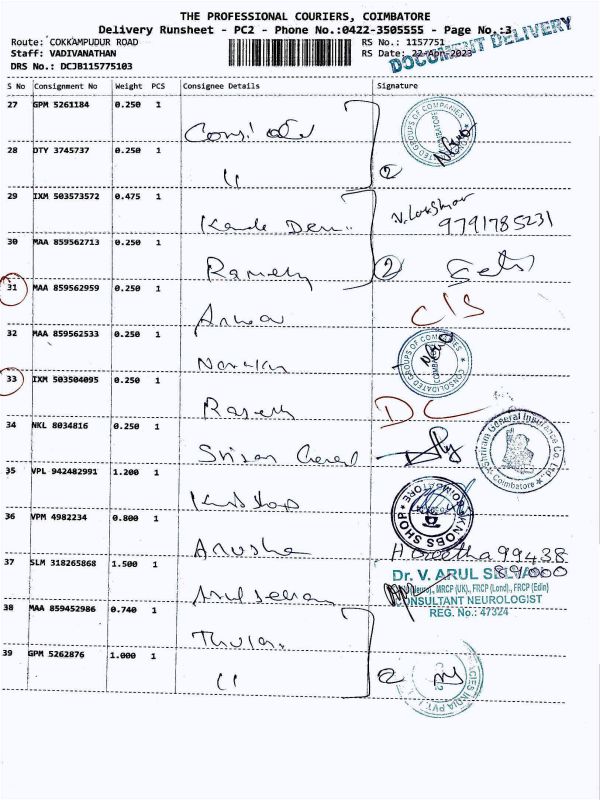 THE PROFESSIONAL COURIERS, COIMBATORE
Delivery Runsheet - PC2 - Phone No.:0422-3505555 - Page No.:3
DOCUMENT DELIVERY
Route: COKKAMPUDUR ROAD RS No.: 1157751
Staff: VADIVANATHAN RS Date: 22-Apr-2023
DRS No.: DCJB115775103
S No Consignment No Weight PCS Consignee Details Signature
27 GPM 5261184 0.250 1
28 DTY 3745737 0.250 1 " 2
29 IXM 503573572 0.475 1
9791785231
30 MAA 859562713 0.250 1 Ramesh 2
31 MAA 859562959 0.250 1
32 MAA 859562533 0.250 1 Narayan
CONSOLIDATED GROUPS OF COMPANIES
33 IXM 503504095 0.250 1 Rajesh DC
34 NKL 8034816 0.250 1 Sriram General
Shriram General Insurance Co. Ltd. Coimbatore
35 VPL 942482991 1.200 1
KNOBS SHOP
36 VPM 4982234 0.800 1 Anusha Hareetha 99438
89000
37 SLM 318265868 1.500 1 Arulselvan
Dr. V. ARUL SELVAN
MRCP (UK)., FRCP (Lond)., FRCP (Edin)
CONSULTANT NEUROLOGIST
REG. No.: 47324
38 MAA 859452986 0.740 1
39 GPM 5262876 1.000 1 " 2